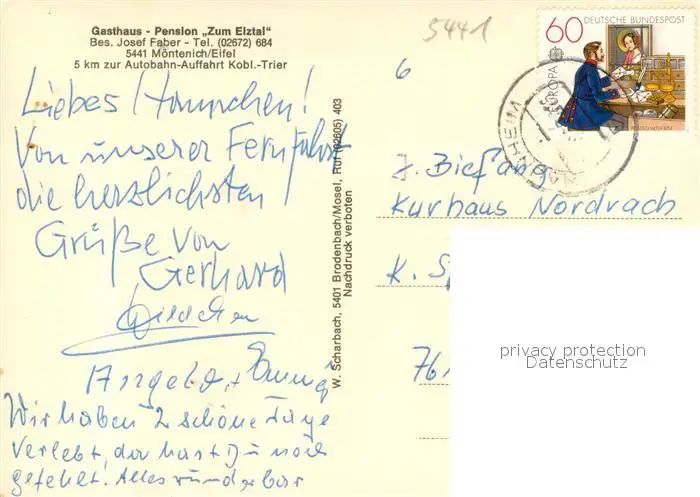 Gasthaus - Pension „Zum Elztal"
Bes. Josef Faber - Tel. (02672) 684
5441 Möntenich/Eifel
5 km zur Autobahn-Auffahrt Kobl.-Trier
5441
60 DEUTSCHE BUNDESPOST
EUROPA
MANNHEIM
6
Liebes Hannchen!
Von unserer Fernfahrt
die herzlichsten
Grüße von
Gerhard
Hildchen
Angela + Emmy
Wir haben 2 schöne Tage
verlebt, da hast Du noch
gefehlt. Alles wunderbar
W. Scharbach, 5401 Brodenbach/Mosel, Ruf (02605) 403
Nachdruck verboten
J. Biefang
Kurhaus Nordrach
K. Sp
761
privacy protection
Datenschutz